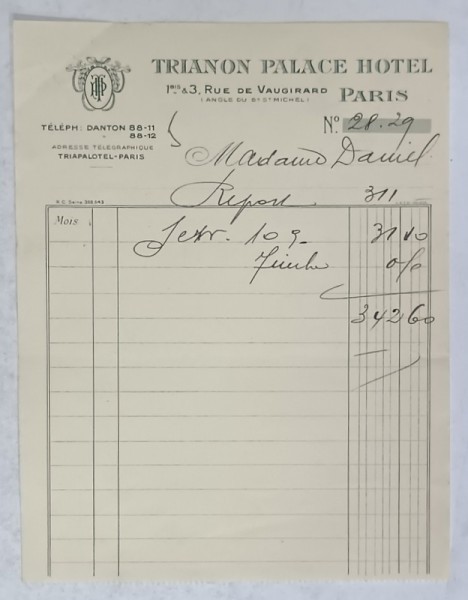 TRIANON PALACE HOTEL
1bis & 3, RUE DE VAUGIRARD
(ANGLE DU Bd St MICHEL)
PARIS
TÉLÉPH: DANTON 88-11
" 88-12
ADRESSE TÉLÉGRAPHIQUE
TRIAPALOTEL-PARIS
No. 28.29
Madame Daniel
Report 311
R.C. Seine
Mois
Serv. 10% 31 10
Timbre
342 60